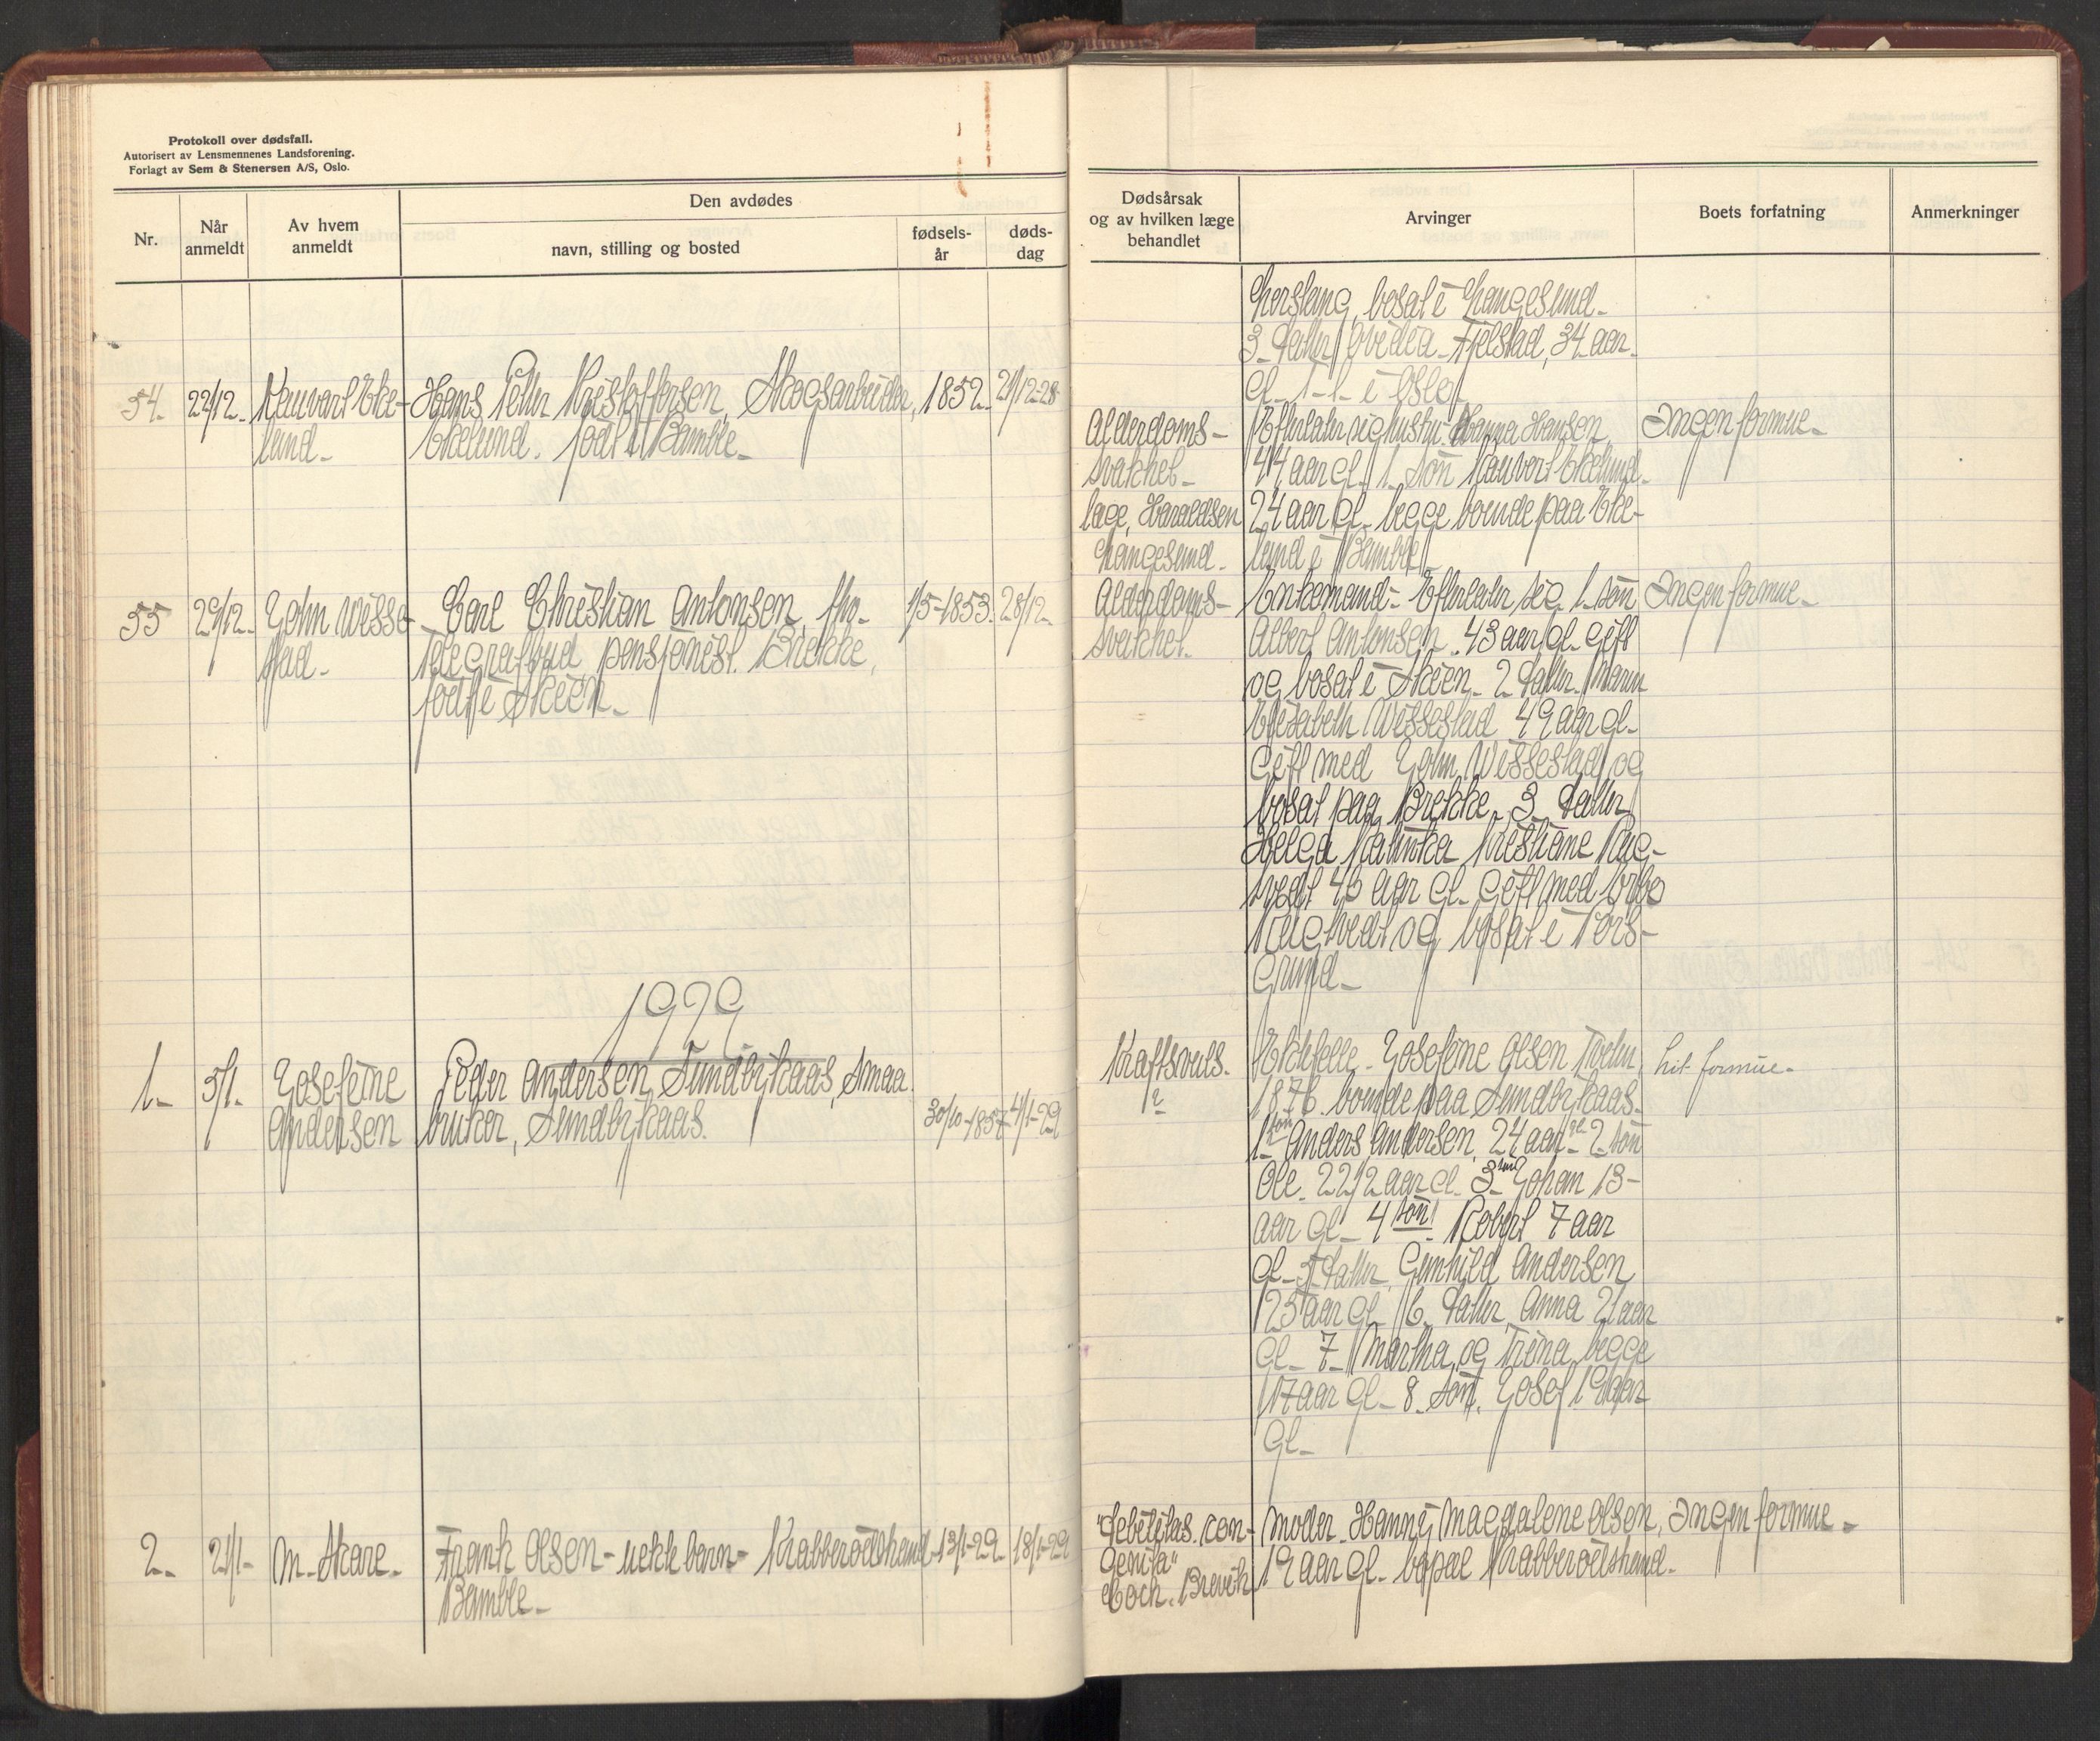 Protokoll over dødsfall.
Autorisert av Lensmennenes Landsforening.
Forlagt av Sem & Stenersen A/S, Oslo.
Nr.
Når
anmeldt
Av hvem
anmeldt
Den avdødes
navn, stilling og bosted
fødsels-
år
døds-
dag
54. 22/12. Hans Peter Kristoffersen, Skogsarbeider, 1852. 21/12-28
land. Ekelund. født i Bamble.
55 29/12. John Wisse- Carl Christian Antonsen, fhv. 1/5-1853. 28/12.
stad. Telegrafbud, pensjonist. Brekke,
født i Skien.
1929
1. 5/1. Josefine Peder Andersen Sundbykaas, Smaa
Andersen bruker, Sundbykaas. 30/10-1857 4/1-29
2. 21/1- M. Skare. Frank Olsen - uekk barn - Krabberødstrand 13/1-29. 18/1-29
Bamble.
Dødsårsak
og av hvilken læge
behandlet
Arvinger
Boets forfatning
Anmerkninger
bosat i Langesund.
3. datter Fjelstad, 34 aar
gl. i Oslo.
Alderdoms- Efterlater sig hustru Hanna Hansen, Ingen formue.
svakhet. 44 aar gl. 1. søn Ekelund.
læge, Haraldsen 24 aar gl. begge boende paa Eke-
Langesund. lund i Bamble.
Alderdoms- Enkemand - Efterlater sig 1. søn Ingen formue.
svakhet. Albert Antonsen. 43 aar gl. gift
og bosat i Skien. 2 datter. Maren
Elisabeth Wissestad 49 aar gl.
gift med John Wissestad og
bosat paa Brekke. 3 datter
Helga Kristiane Rug-
tvedt 46 aar gl. gift med
Rugtvedt og bosat i Pors-
grund.
Kraftsvuls. Ektefelle - Josefine Olsen født Lit formue.
? 1876. boende paa Sundbykaas.
1. søn Anders Andersen, 24 aar gl. 2. søn
Ole. 22 1/2 aar gl. 3. søn Johan 13-
aar gl. 4 søn. Robert 7 aar
gl. 5 datter, Gunhild Andersen
23 aar gl. 6. datter, Anna 21 aar
gl. 7. Martha og Trina, begge
17 aar gl. 8. søn. Josef 19 aar
gl.
"Debilitas con- Moder. Hanny Magdalene Olsen, Ingen formue.
genita" 19 aar gl. bopæl Krabberødstrand.
Coch. Brevik